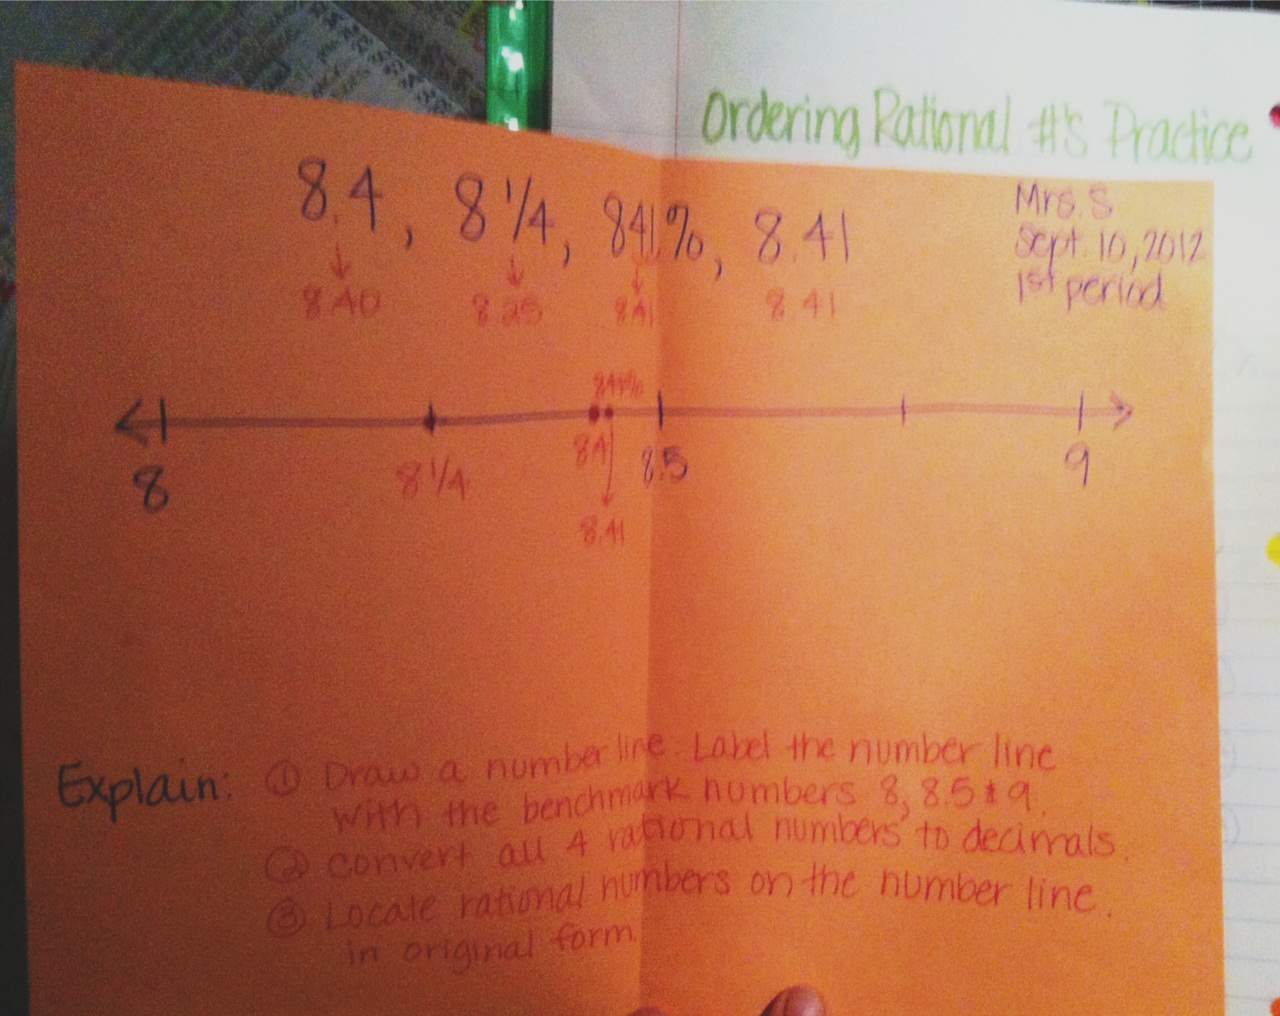 Ordering Rational #'s Practice
Mrs. S
Sept. 10, 2012
1st period
8.4, 8 1/4, 841%, 8.41
8.40 8.25 8.41 8.41
841%
8 8 1/4 8.4 8.5 9
8.41
Explain: ① Draw a number line. Label the number line
with the benchmark numbers 8, 8.5 & 9.
② convert all 4 rational numbers to decimals.
③ Locate rational numbers on the number line.
in original form.